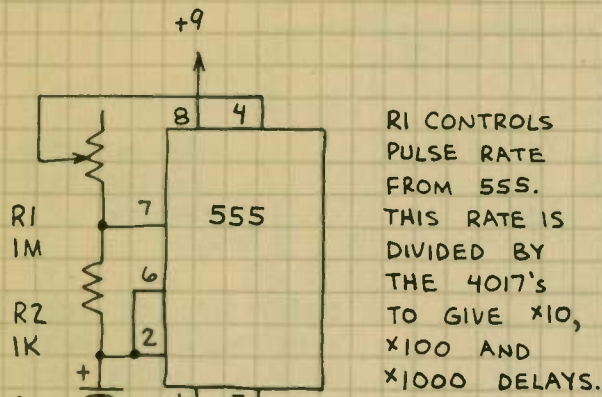 +9
8 4
R1
1M
7
555
6
R2
1K
2
+
R1 CONTROLS
PULSE RATE
FROM 555.
THIS RATE IS
DIVIDED BY
THE 4017's
TO GIVE ×10,
×100 AND
×1000 DELAYS.